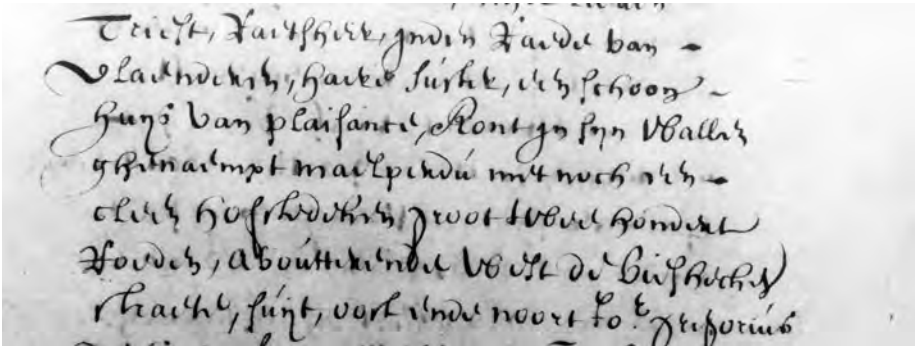 Triest, Raetsheer, inden Raede van
Vlaenderen, haere suster, een schoon
huys van plaisance, Ront in syn Wallen
ghenaempt maelpendu met noch een
cleen hofstedeken groot twee hondert
Roeden, aboutterende West de Biesbeke
straete, suyt, oost ende noort Jor. Gregorius